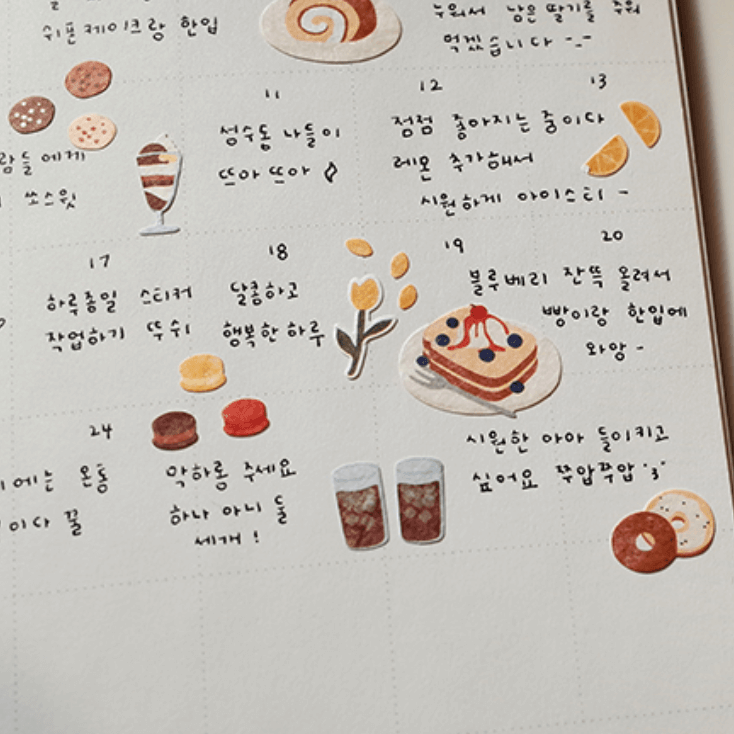 쉬폰케이크랑 한입
누워서 남은 딸기를 주워
먹겠습니다 -_-
11
12
13
람들에게
쏘스윗
성수동 나들이
뜨아 뜨아
점점 좋아지는 중이다
레몬 추가해서
시원하게 아이스티 ~
17
18
19
20
하루종일 스티커
작업하기 뚜쉬
달콤하고
행복한 하루
블루베리 잔뜩 올려서
빵이랑 한입에
와앙 ~
24
에는 온통
이다 꿀
악하롱 주세요
하나 아니 둘
세개 !
시원한 아아 들이키고
싶어요 쭈압쭈압 '3'